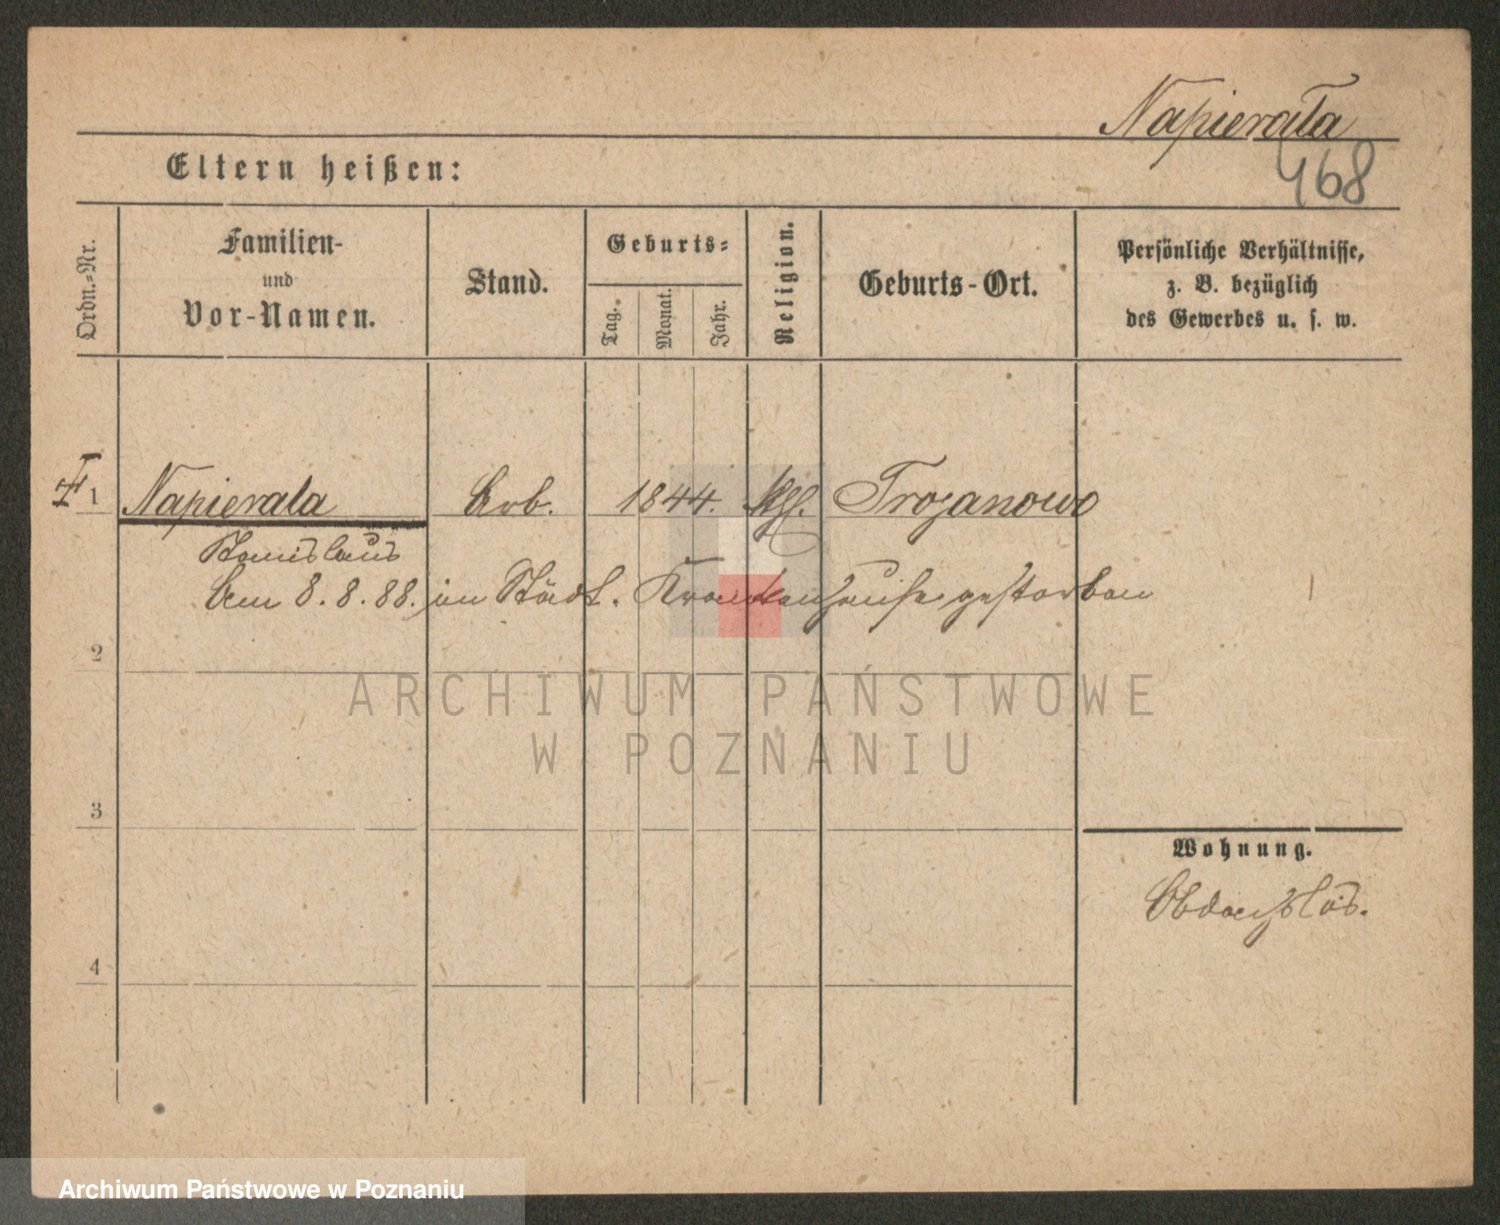 Napierała
468
Eltern heißen:
Ordn.-Nr.
Familien-
und
Vor-Namen.
Stand.
Geburts-
Tag.
Monat.
Jahr.
Religion.
Geburts-Ort.
Persönliche Verhältnisse,
z. B. bezüglich
des Gewerbes u. s. w.
1 Napierala Arb. 1844. kth. Trojanowo
Stanislaus
Am 8.8.88. im Städt. Krankenhause gestorben
2
ARCHIWUM PAŃSTWOWE
W POZNANIU
3
Wohnung.
Obdachslos.
4
Archiwum Państwowe w Poznaniu